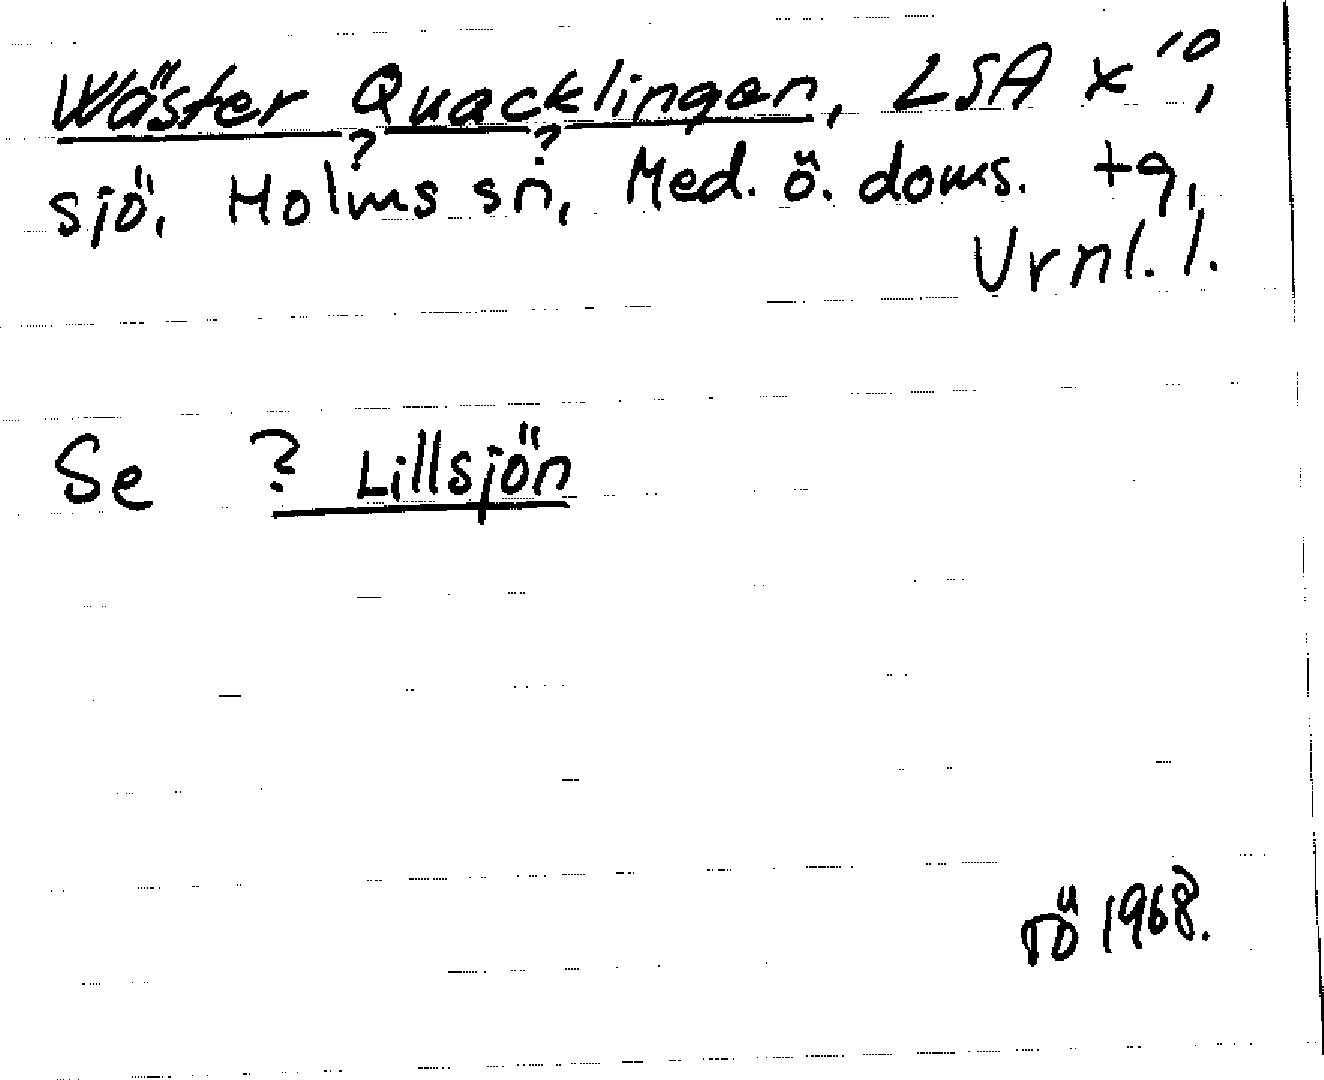 Wäster Quacklingen, LSA X 10,
sjö, Holms sn, Med. ö. doms. tg,
Vrnl. l.
Se ? Lillsjön
rö 1968.